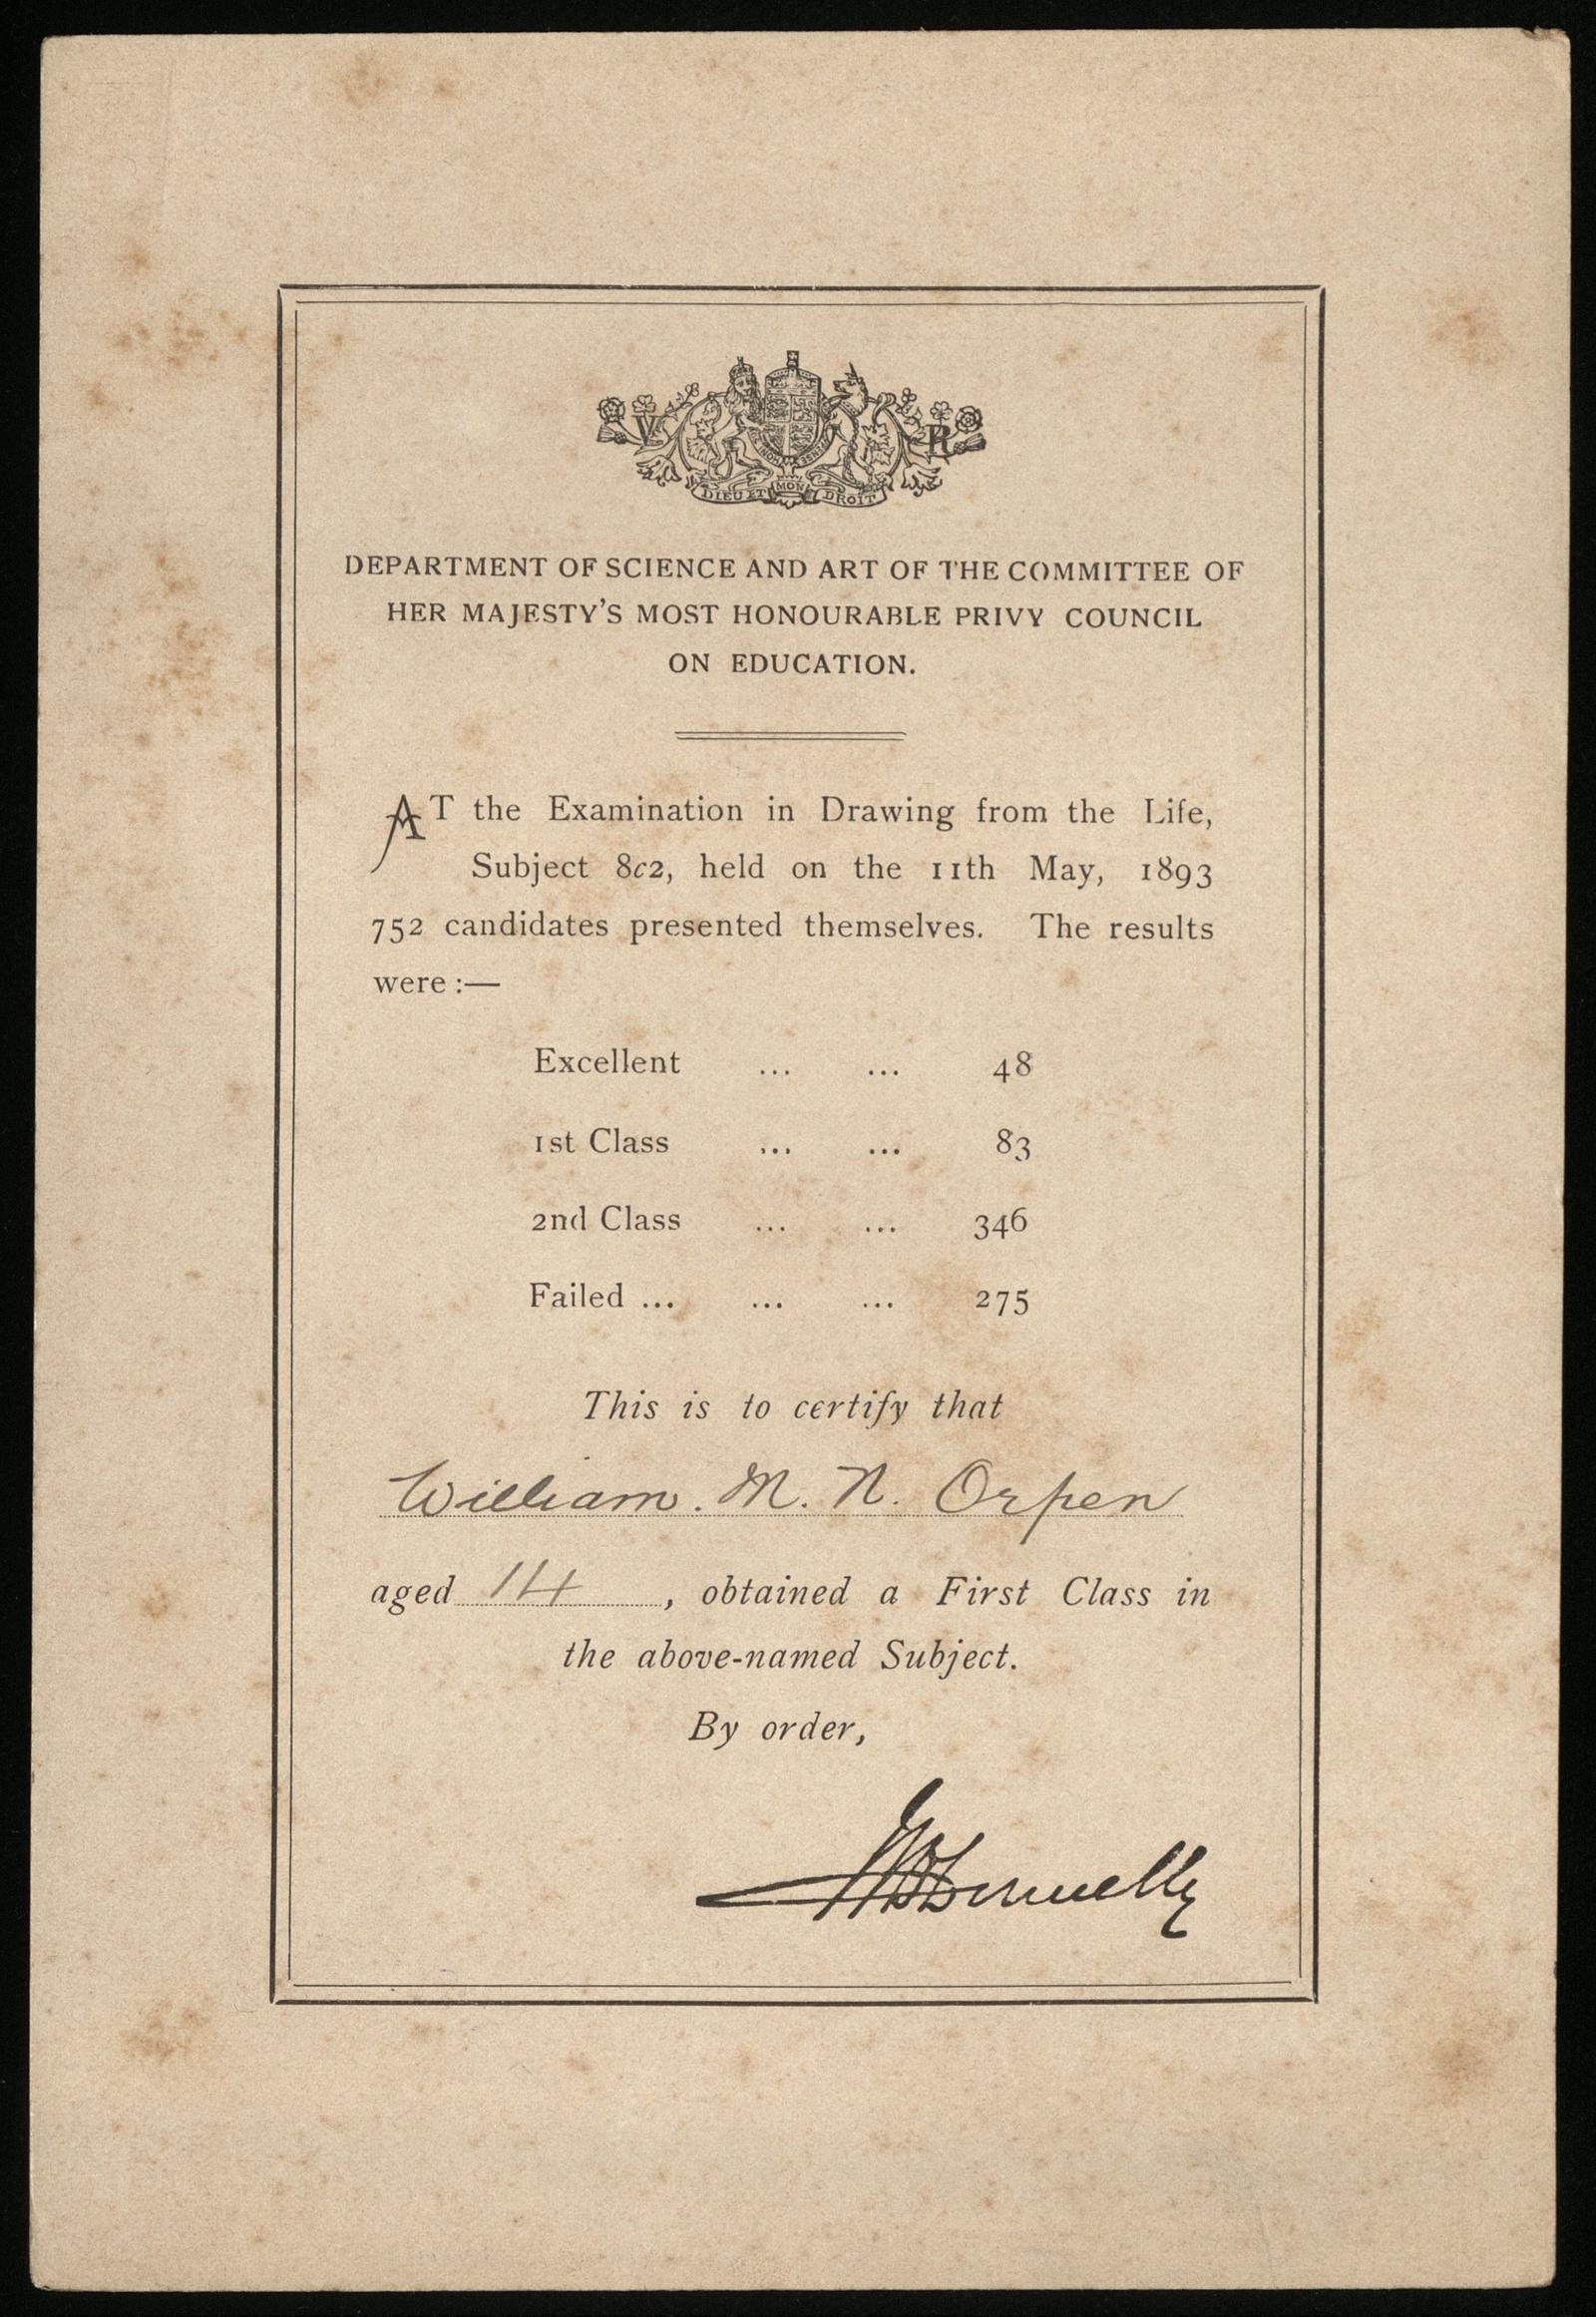 V R
HONI SOIT QUI MAL Y PENSE
DIEU ET MON DROIT
DEPARTMENT OF SCIENCE AND ART OF THE COMMITTEE OF
HER MAJESTY'S MOST HONOURABLE PRIVY COUNCIL
ON EDUCATION.
AT the Examination in Drawing from the Life,
Subject 8c2, held on the 11th May, 1893
752 candidates presented themselves. The results
were :—
Excellent ... ... 48
1st Class ... ... 83
2nd Class ... ... 346
Failed ... ... ... 275
This is to certify that
William. M. N. Orpen
aged 14, obtained a First Class in
the above-named Subject.
By order,
Donnelly